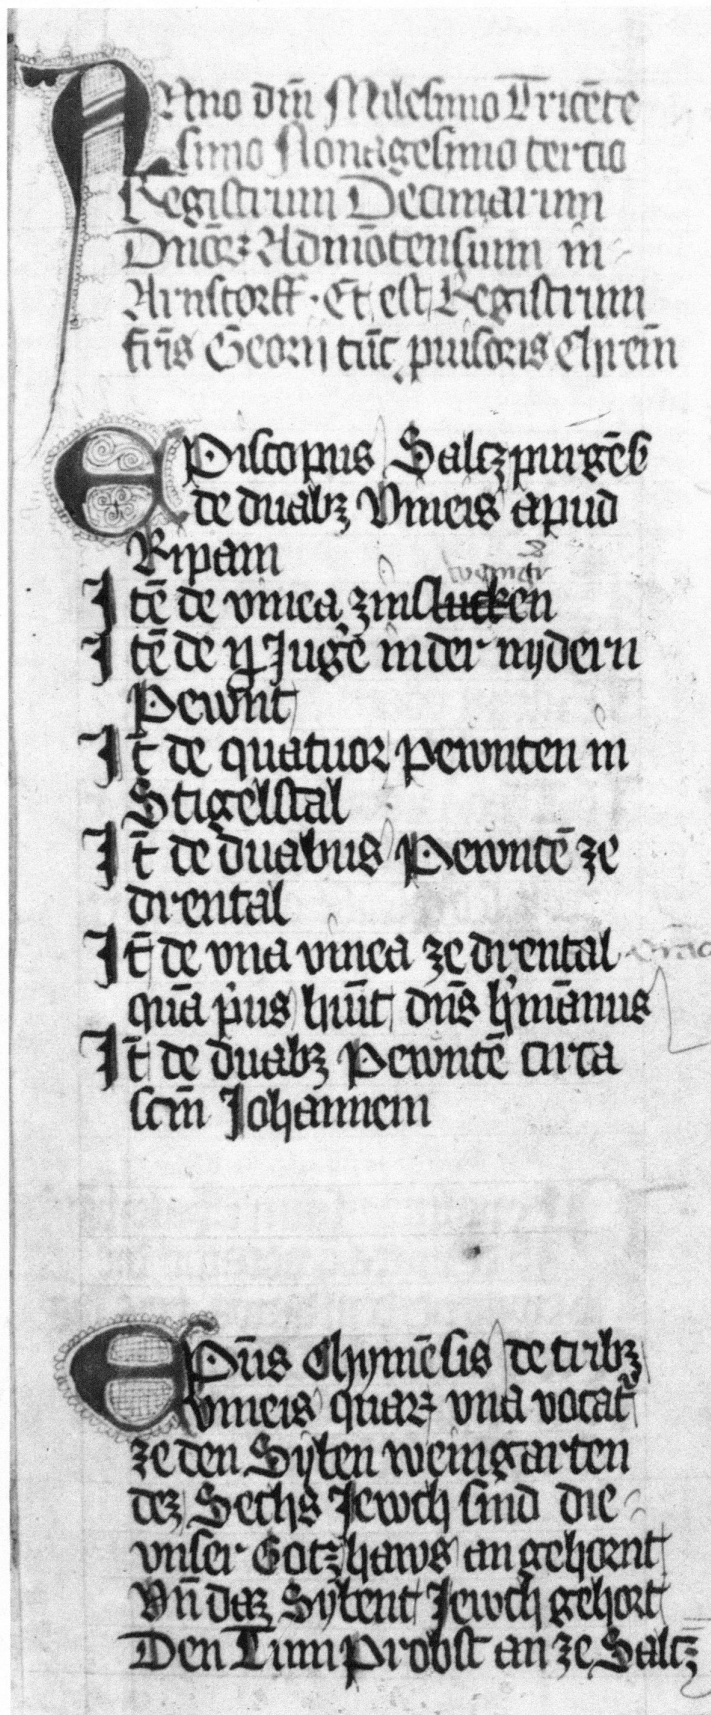 ANno dm̄ Milesimo Tricēte
simo Nonagesimo tercio
Registrum Decimarum
Dnōꝝ Admōtensium in
Arnstorff · Et est Registrum
frīs Georij tūc puisoris Chrem̄
EPiscopus Saltzpurgēs
de duabꝫ Vineis apud
Ripam
Itē de vinea zinstucken
Itē de Juger in der nydern
Pewnt
It̄ de quatuor pewnten in
Stigelstal
It̄ de duabus Pewntē ze
drental
It̄ de vna vinea ze drental
quā pius hūit dn̄s hmānus
It̄ de duabꝫ Pewntē circa
scm̄ Johannem
EPūs Chymēsis de tribꝫ
vineis quaꝝ vna vocat
ze den Syben weingarten
dez Sechs Jewch sind die
vnser Gotzhaws an gehornt
Vn̄ daz Sybent Jewch gehort
Den Tumprobst an ze Saltz